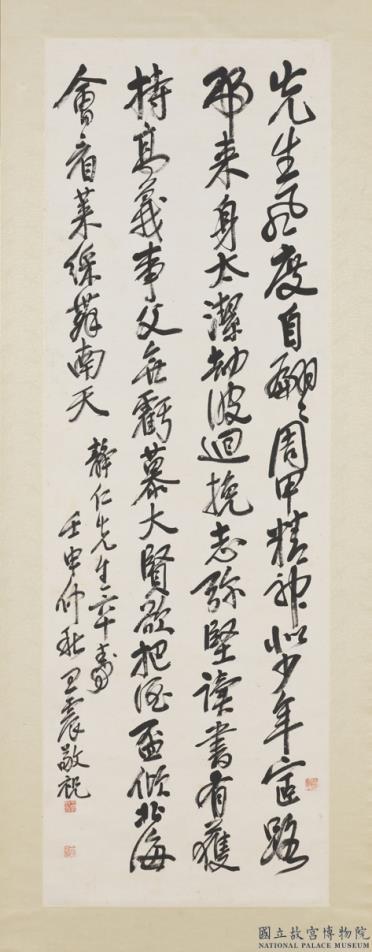 先生風度自翩翩周甲精神似少年宦路
歸来身太潔劫波迴挽志弥堅讀書有獲
持高義事父無虧慕大賢欲把酒盃傾北海
會看萊綵舞南天
靜仁先生六十壽
壬申仲秋王震敬祝
國立故宮博物院
NATIONAL PALACE MUSEUM